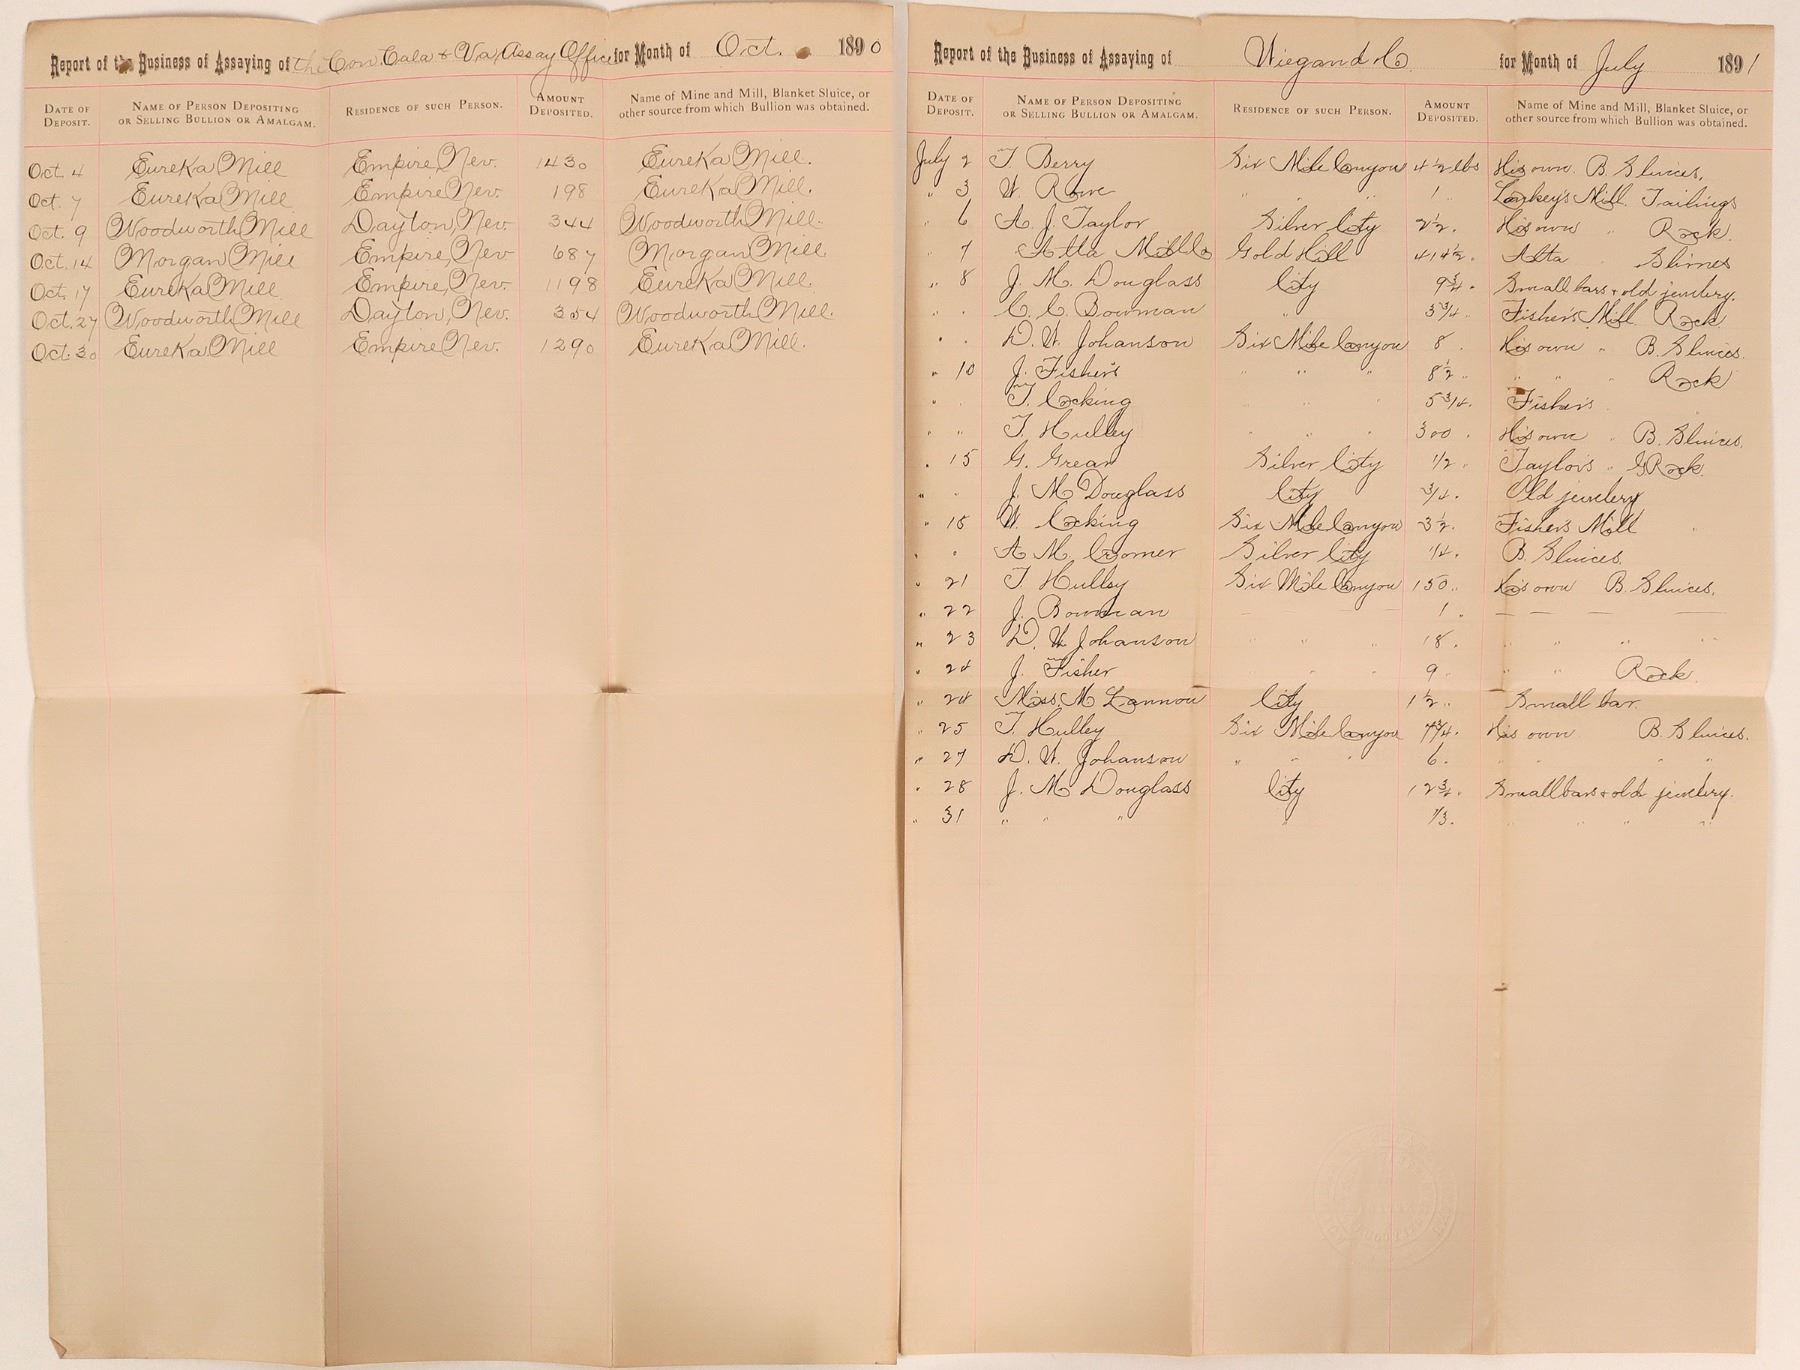 Report of the Business of Assaying of the Con. Cala & Va. Assay Office for Month of Oct. 1890
DATE OF DEPOSIT. NAME OF PERSON DEPOSITING OR SELLING BULLION OR AMALGAM. RESIDENCE OF SUCH PERSON. AMOUNT DEPOSITED. Name of Mine and Mill, Blanket Sluice, or other source from which Bullion was obtained.
Oct. 4 Eureka Mill Empire, Nev. 1430 Eureka Mill.
Oct. 7 Eureka Mill Empire Nev. 198 Eureka Mill.
Oct. 9 Woodworth Mill Dayton, Nev. 344 Woodworth Mill.
Oct. 14 Morgan Mill Empire, Nev 687 Morgan Mill
Oct. 17 Eureka Mill Empire, Nev. 1198 Eureka Mill.
Oct. 27 Woodworth Mill Dayton, Nev. 354 Woodworth Mill.
Oct. 30 Eureka Mill Empire Nev. 1290 Eureka Mill.
Report of the Business of Assaying of Wiegand & Co for Month of July 1891
DATE OF DEPOSIT. NAME OF PERSON DEPOSITING OR SELLING BULLION OR AMALGAM. RESIDENCE OF SUCH PERSON. AMOUNT DEPOSITED. Name of Mine and Mill, Blanket Sluice, or other source from which Bullion was obtained.
July 2 T. Berry Six Mile Canyon 4 1/2 lbs His own B. Sluices.
" 3 W. Rowe " " " 1 " Mill Tailings
" 6 A. J. Taylor Silver City 2 1/2 " His own " Rock.
" 7 Alta Gold Hill 414 1/2 " Alta " Slimes
" 8 J. M. Douglass City 9 3/4 " Small bars & old jewelery.
" " C. C. Bowman " 3 3/4 " Fisher's Mill Rock
" " D. W. Johanson Six Mile Canyon 8 " His own " B. Sluices.
" 10 J. Fisher's " " " 8 1/2 " " " " Rock
" " T. Cocking " " " 5 3/4 " Fisher's
" " T. Hulley " " " 300 " His own " B. Sluices.
" 15 G. Silver City 1/2 " Taylor's " Rock
" " J. M. Douglass City 3/4 " Old jewelery
" W. Cocking Six Mile Canyon 3 1/2 " Fisher's Mill "
" " A. M. Silver City 1/4 " B. Sluices.
" 21 T. Hulley Six Mile Canyon 150 " His own B. Sluices.
" 22 J. Bowman — — — 1 " — — —
" 23 D. W. Johanson " " " 18 " " " " "
" 24 J. Fisher " " " 9 " " " Rock.
" 24 Miss. M Lannon City 1 1/2 " Small bar.
" 25 T. Hulley Six Mile Canyon His own B. Sluices.
" 27 D. W. Johanson " " " 6 " " " " "
" 28 J. M Douglass City Small bars & old jewelery.
" 31 " " " " 1/3 " " " " "